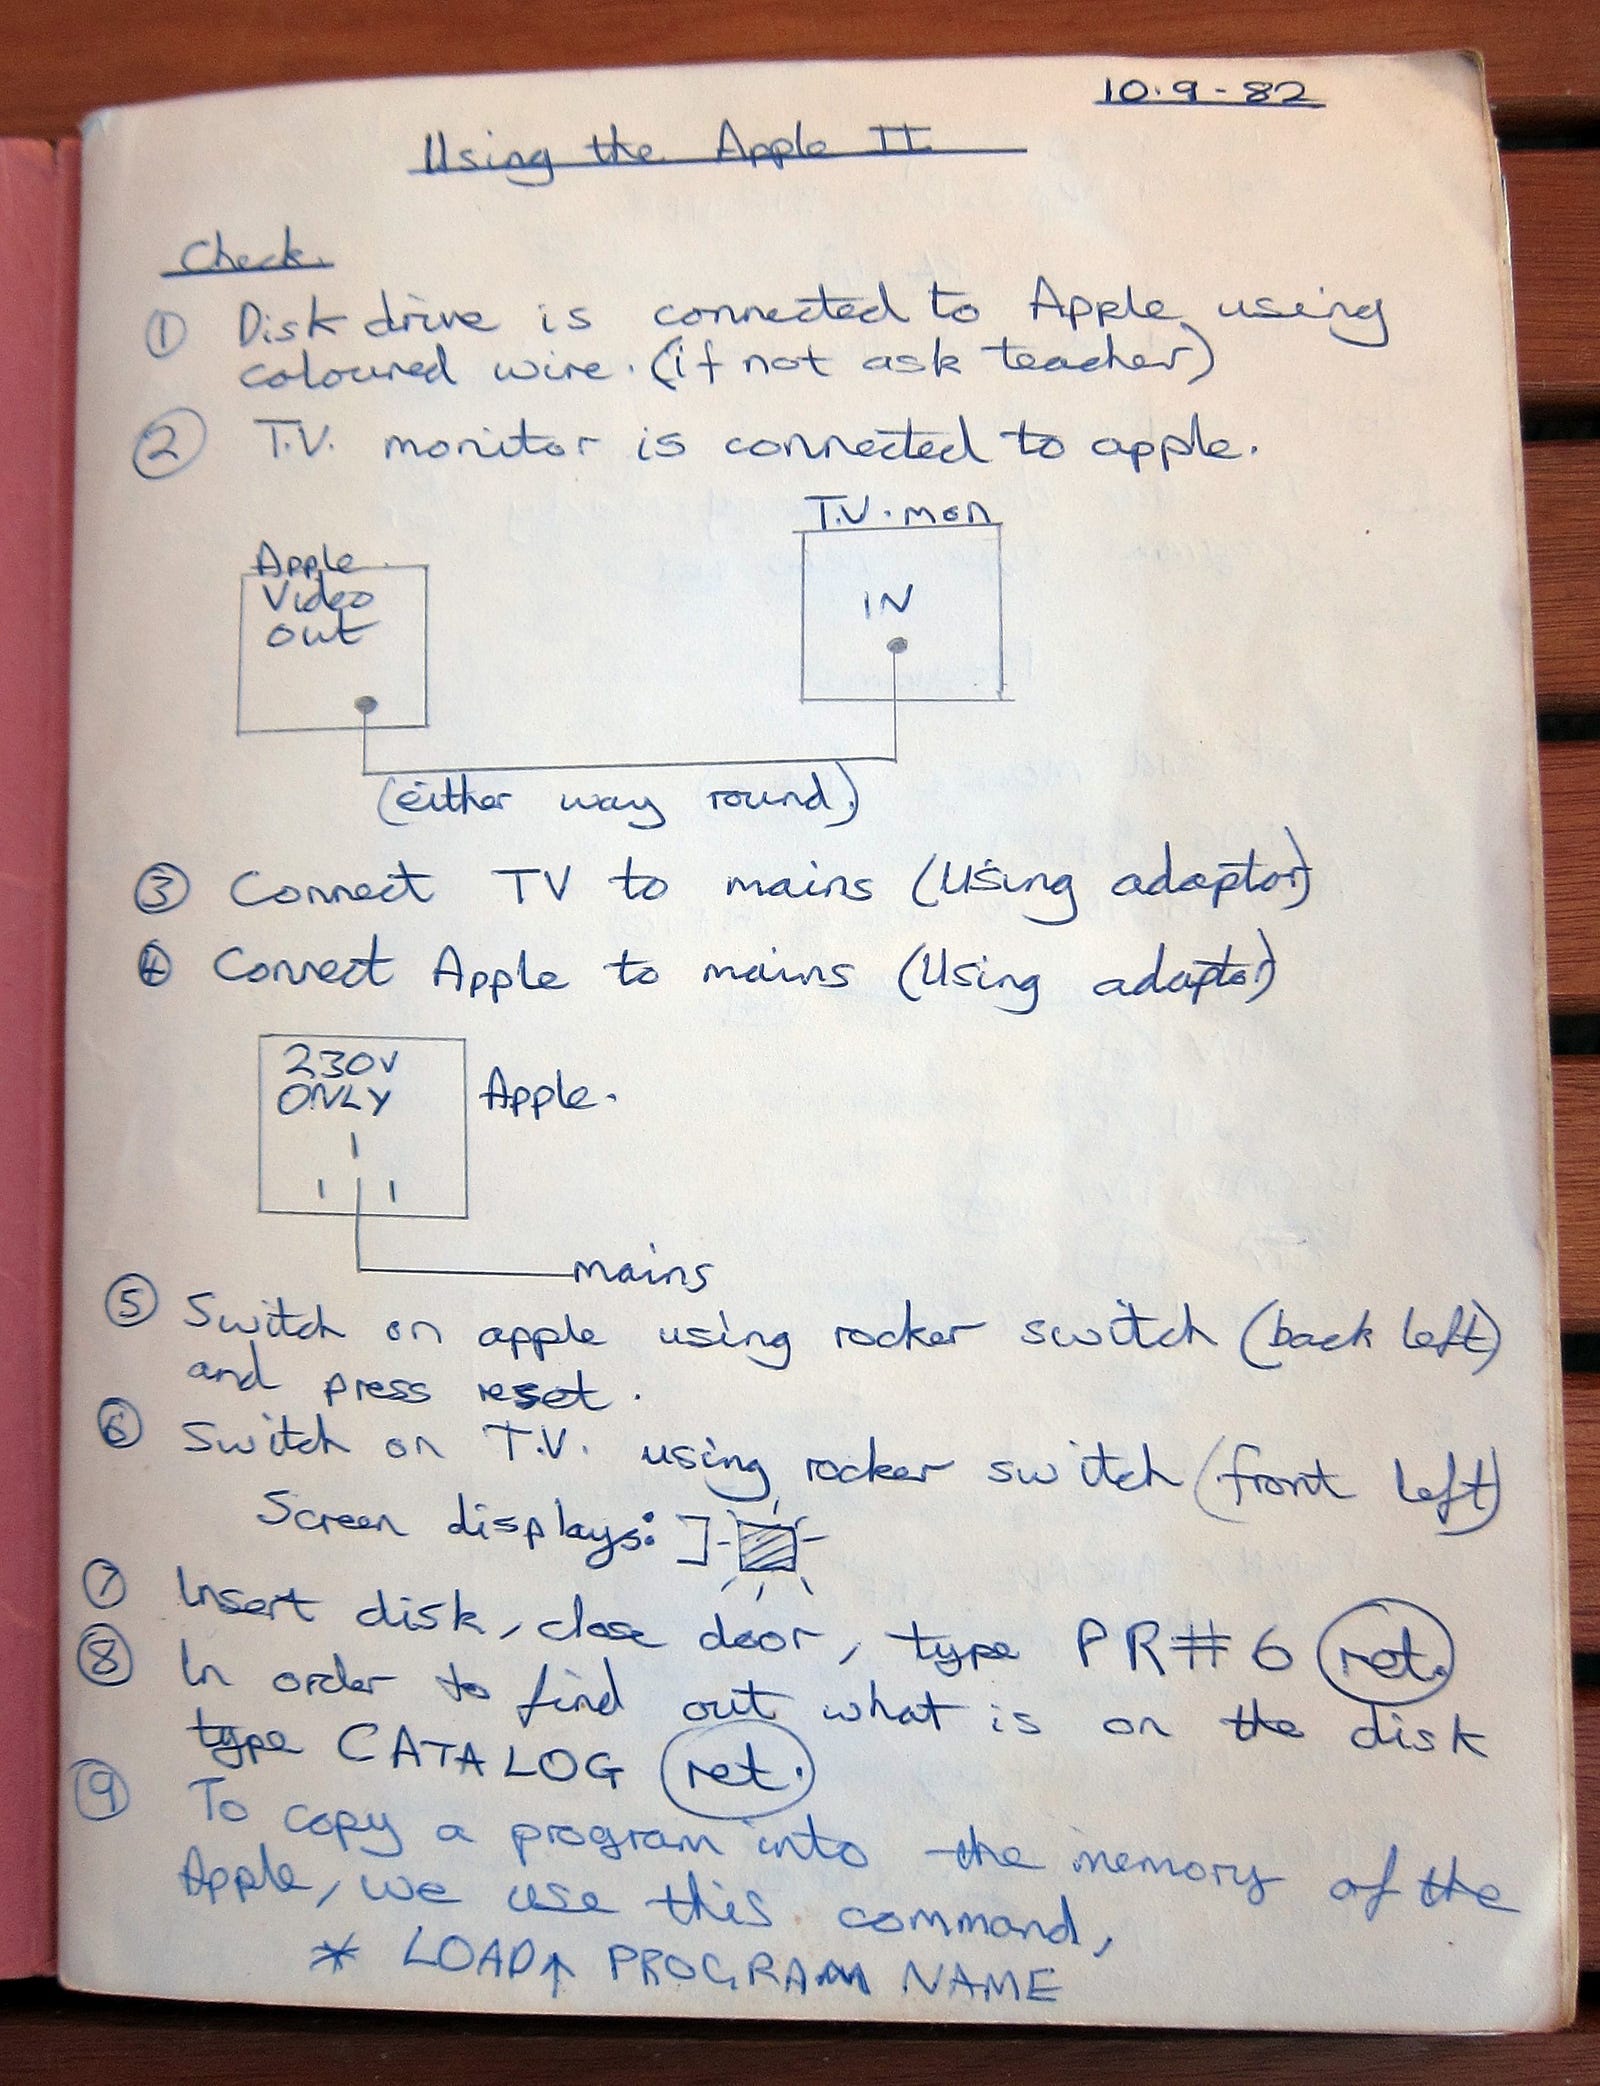 10.9-82
Using the Apple II
Check.
① Disk drive is connected to Apple using
coloured wire. (if not ask teacher)
② T.V. monitor is connected to apple.
T.V. mon
Apple
Video
out
IN
(either way round)
③ Connect TV to mains (Using adaptor)
④ Connect Apple to mains (Using adaptor)
230V
ONLY
Apple.
mains
⑤ Switch on apple using rocker switch (back left)
and press reset.
⑥ Switch on T.V. using rocker switch (front left)
Screen displays: ]
⑦ Insert disk, close door, type PR#6 ret.
⑧ In order to find out what is on the disk
type CATALOG ret.
⑨ To copy a program into the memory of the
Apple, we use this command,
* LOAD↑ PROGRAM NAME